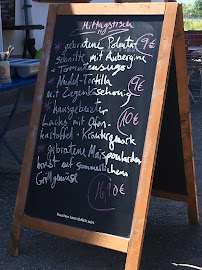 Mittagstisch
* gebratene Polenta- 9€
schnitte mit Aubergine
+ Tomatensugo
* Nudel-Tortilla
mit Ziegenkäse/Honig 9€
* hausgebeizter
Lachs mit Ofen-
kartoffel + Kräuterquark 10€
* gebratene Maispoularden-
brust auf sommerlichem
Grillgemüse 16,10€